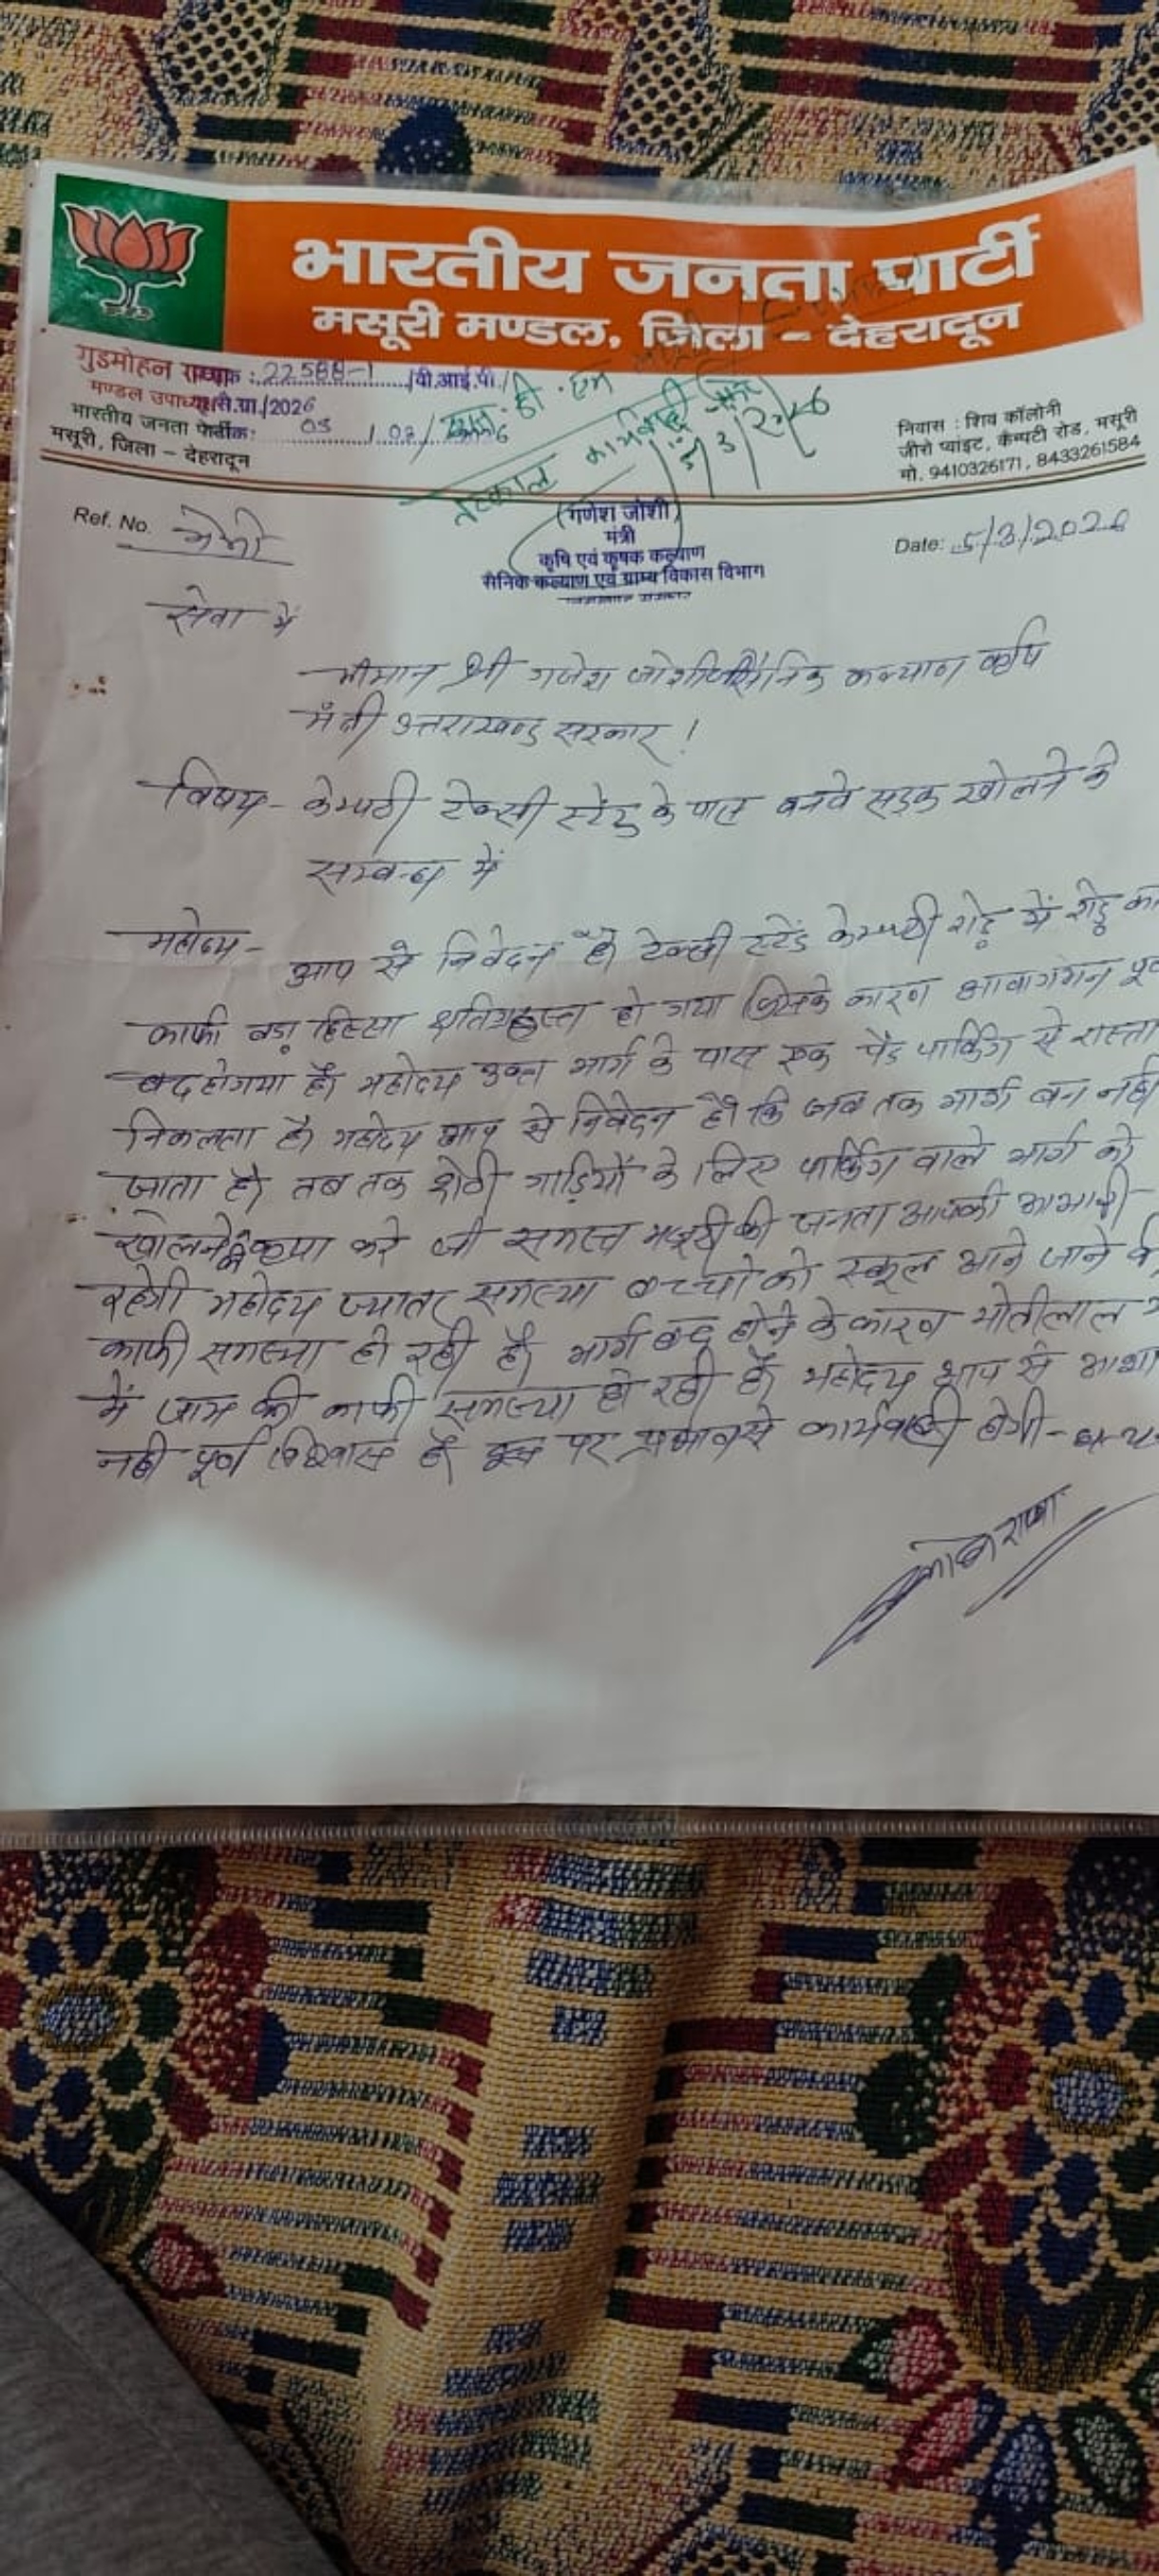 भारतीय जनता पार्टी
मसूरी मण्डल, जिला - देहरादून
गुडमोहन राणा
मण्डल उपाध्यक्ष
भारतीय जनता पार्टी
मसूरी, जिला - देहरादून
22588-1 /वी.आई.पी./
से.ग्रा./2026
05 / 03 /
एस.डी.एम
तत्काल कार्यवाही करें
5/3/2026
निवास : शिव कॉलोनी
जीरो प्वाइंट, कैम्पटी रोड, मसूरी
मो. 9410326171, 8433261584
Ref. No.
Date: 5/3/2026
(गणेश जोशी)
मंत्री
कृषि एवं कृषक कल्याण
सैनिक कल्याण एवं ग्राम्य विकास विभाग
सेवा में
श्रीमान श्री गणेश जोशी सैनिक कल्याण कृषि
मंत्री उत्तराखण्ड सरकार !
विषय - केम्पटी टेक्सी स्टेंड के पास सड़क खोलने के
सम्बन्ध में
महोदय -
आप से निवेदन है टेक्सी स्टेंड केम्पटी रोड़ में रोड़ का
काफी बड़ा हिस्सा क्षतिग्रस्त हो गया जिसके कारण आवागमन
बंद होगया है। महोदय उक्त मार्ग के पास एक पेड पार्किंग से रास्ता
निकलता है। महोदय आप से निवेदन है कि जब तक मार्ग बन नहीं
जाता है तब तक छोटी गाड़ियों के लिए पार्किंग वाले मार्ग को
खोलने की कृपा करे जी समस्त मसूरी की जनता आपकी आभारी
रहेगी महोदय समस्या बच्चो को स्कूल आने जाने
काफी समस्या हो रही है। मार्ग बंद होने के कारण मोतीलाल
में जाम की काफी समस्या हो रही है महोदय आप से आशा
नही पूर्ण विश्वास है इस पर कार्यवाही होगी -